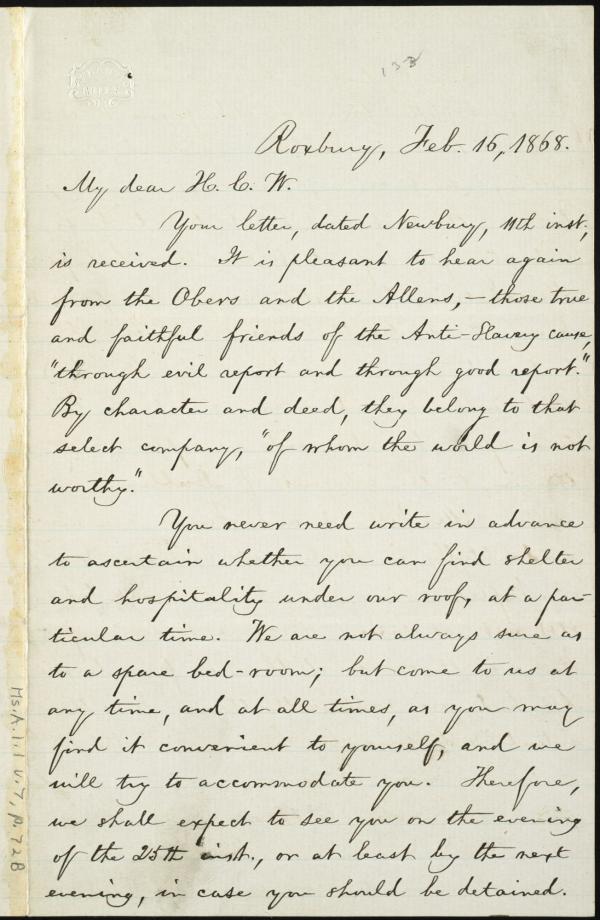 133
Roxbury, Feb. 16, 1868.
My dear H. C. W.
Your letter, dated Newbury, 11th inst.,
is received. It is pleasant to hear again
from the Obers and the Allens, — those true
and faithful friends of the Anti-Slavery cause,
"through evil report and through good report."
By character and deed, they belong to that
select company, "of whom the world is not
worthy."
You never need write in advance
to ascertain whether you can find shelter
and hospitality under our roof, at a par-
ticular time. We are not always sure as
to a spare bed-room; but come to us at
any time, and at all times, as you may
find it convenient to yourself, and we
will try to accommodate you. Therefore,
we shall expect to see you on the evening
of the 25th inst., or at least by the next
evening, in case you should be detained.
Ms.A.1.1 v.7, p.72B